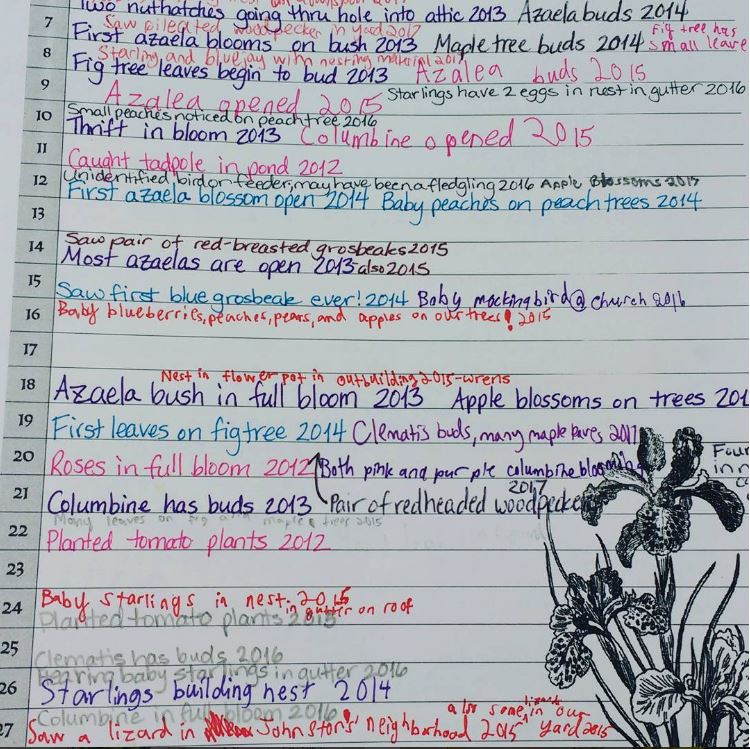 Two nuthatches going thru hole into attic 2013 Azaela buds 2014
7
Saw pileated woodpecker in yard 2017
First azaela blooms on bush 2013 Maple tree buds 2014 Fig tree has small leave
8
Starling and bluejay with nesting material 2017
Fig tree leaves begin to bud 2013 Azalea buds 2015
9
Azalea opened 2015 Starlings have 2 eggs in nest in gutter 2016
10
Small peaches noticed on peach tree 2016
Thrift in bloom 2013 Columbine opened 2015
11
Caught tadpole in pond 2012
12
Unidentified bird on feeder, may have been a fledgling 2016 Apple Blossoms 2017
First azaela blossom open 2014 Baby peaches on peach trees 2014
13
14
Saw pair of red-breasted grosbeaks 2015
Most azaelas are open 2013-also 2015
15
Saw first blue grosbeak ever! 2014 Baby mockingbird @ church 2016
16
Baby blueberries, peaches, pears, and apples on our trees! 2015
17
Nest in flower pot in outbuilding 2015-wrens
18
Azaela bush in full bloom 2013 Apple blossoms on trees 201
19
First leaves on fig tree 2014 Clematis buds, many maple leaves 2017
20
Roses in full bloom 2012 Both pink and purple columbine blooming
2017
21
Columbine has buds 2013 Pair of redheaded woodpecker
Many leaves on fig and maple trees 2015
22
Planted tomato plants 2012
23
Baby starlings in nest 2015
in gutter on roof
24
Planted tomato plants 2013
25
Clematis has buds 2016
Hearing baby starlings in gutter 2016
26
Starlings building nest 2014
Columbine in full bloom 2016
also some lizards in our yard 2015
27
Saw a lizard in Johnston's neighborhood 2015